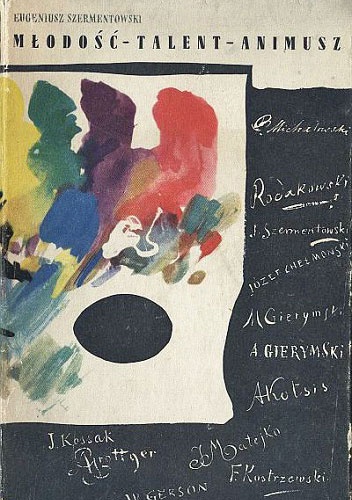 EUGENIUSZ SZERMENTOWSKI
MŁODOŚĆ-TALENT-ANIMUSZ
P. Michałowski
Rodakowski
J. Szermentowski
JÓZEF CHEŁMOŃSKI
M Gierymski
A. GIERYMSKI
AKotsis
J. Kossak
AGrottger
J Matejko
F. Kostrzewski
W. GERSON